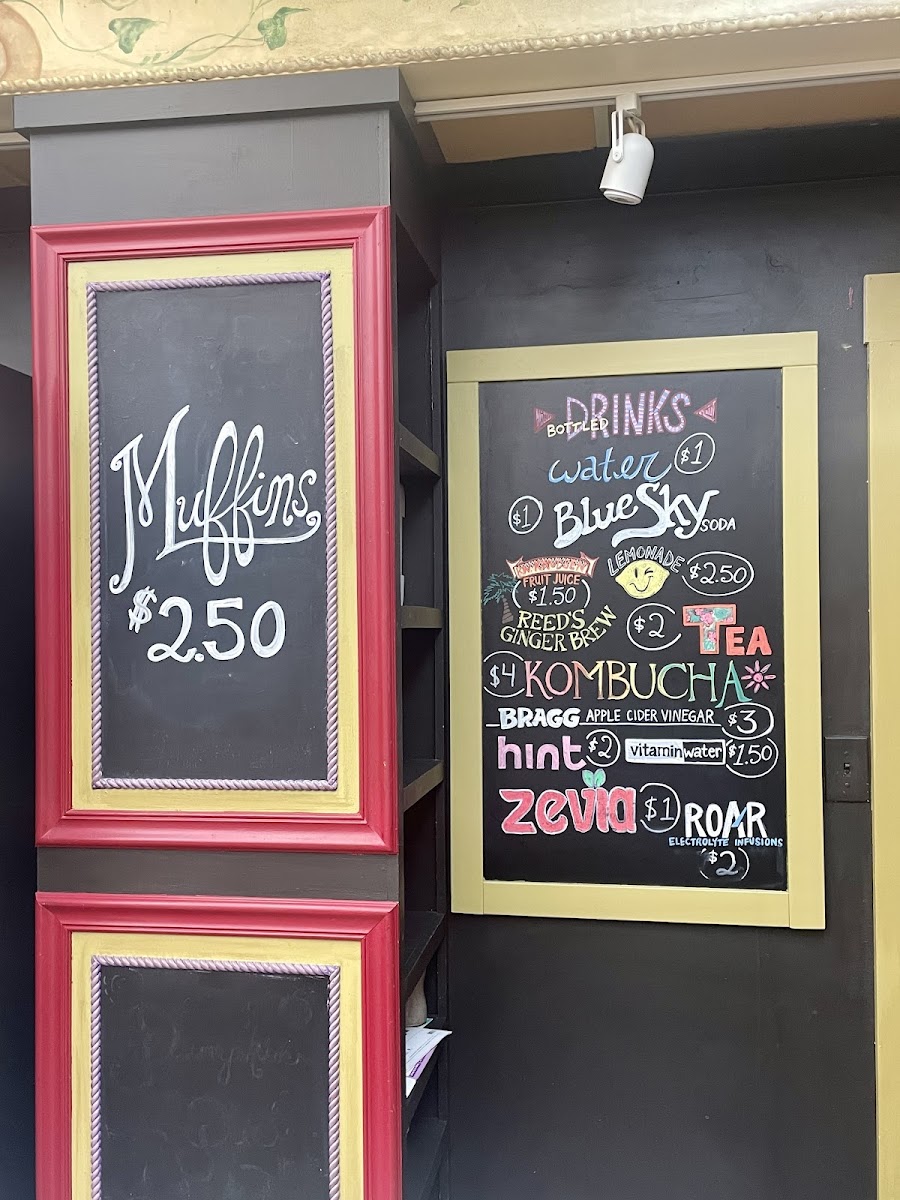 Muffins
$2.50
DRINKS
BOTTLED
water $1
$1 Blue Sky SODA
FRUIT JUICE
$1.50
LEMONADE
$2.50
REED'S
GINGER BREW
$2 TEA
$4 KOMBUCHA
BRAGG APPLE CIDER VINEGAR $3
hint $2 vitaminwater $1.50
zevia $1 ROAR
ELECTROLYTE INFUSIONS
$2